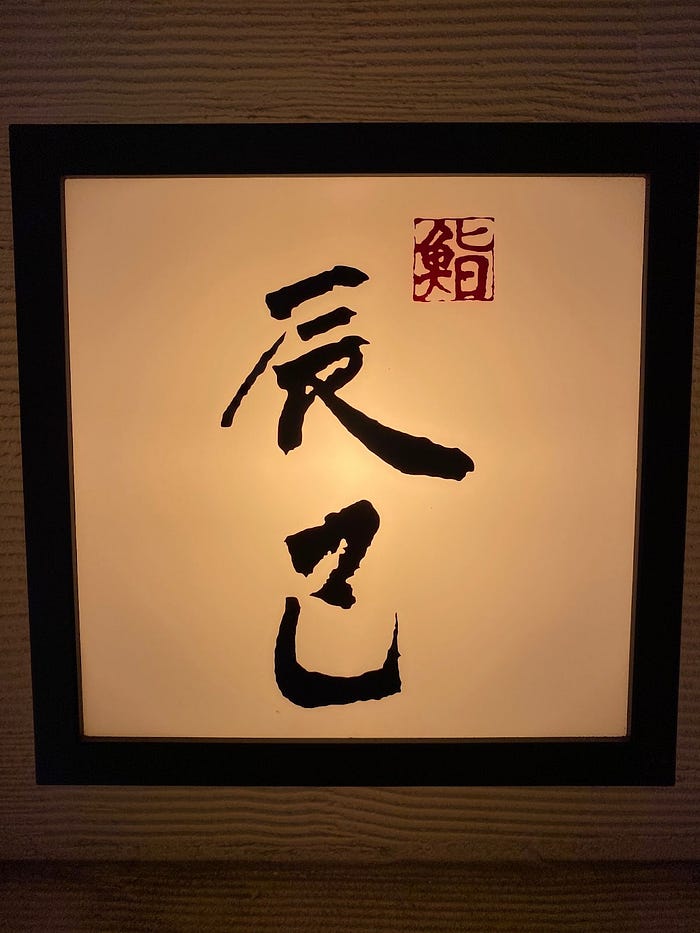 鮨
辰巳